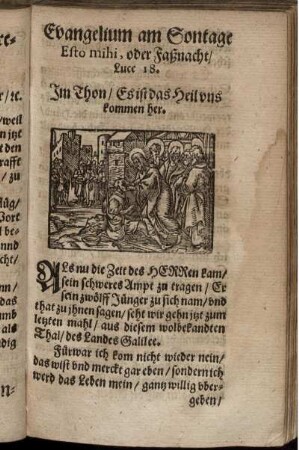 Evangelium am Sontage
Esto mihi, oder Faßnacht/
Luce 18.
Im Thon/ Es ist das Heil vns
kommen her.
ALs nu die Zeit des HERRen kam/
sein schweres Ampt zu tragen/ Er
sein zwölff Jünger zu sich nam/ vnd
that zu jhnen sagen/ seht wir gehn jtzt zum
letzten mahl/ aus diesem wolbekandten
Thal/ des Landes Galilee.
Fürwar ich kom nicht wieder nein/
das wist vnd mercket gar eben/ sondern ich
werd das Leben mein/ gantz willig vber-
geben/